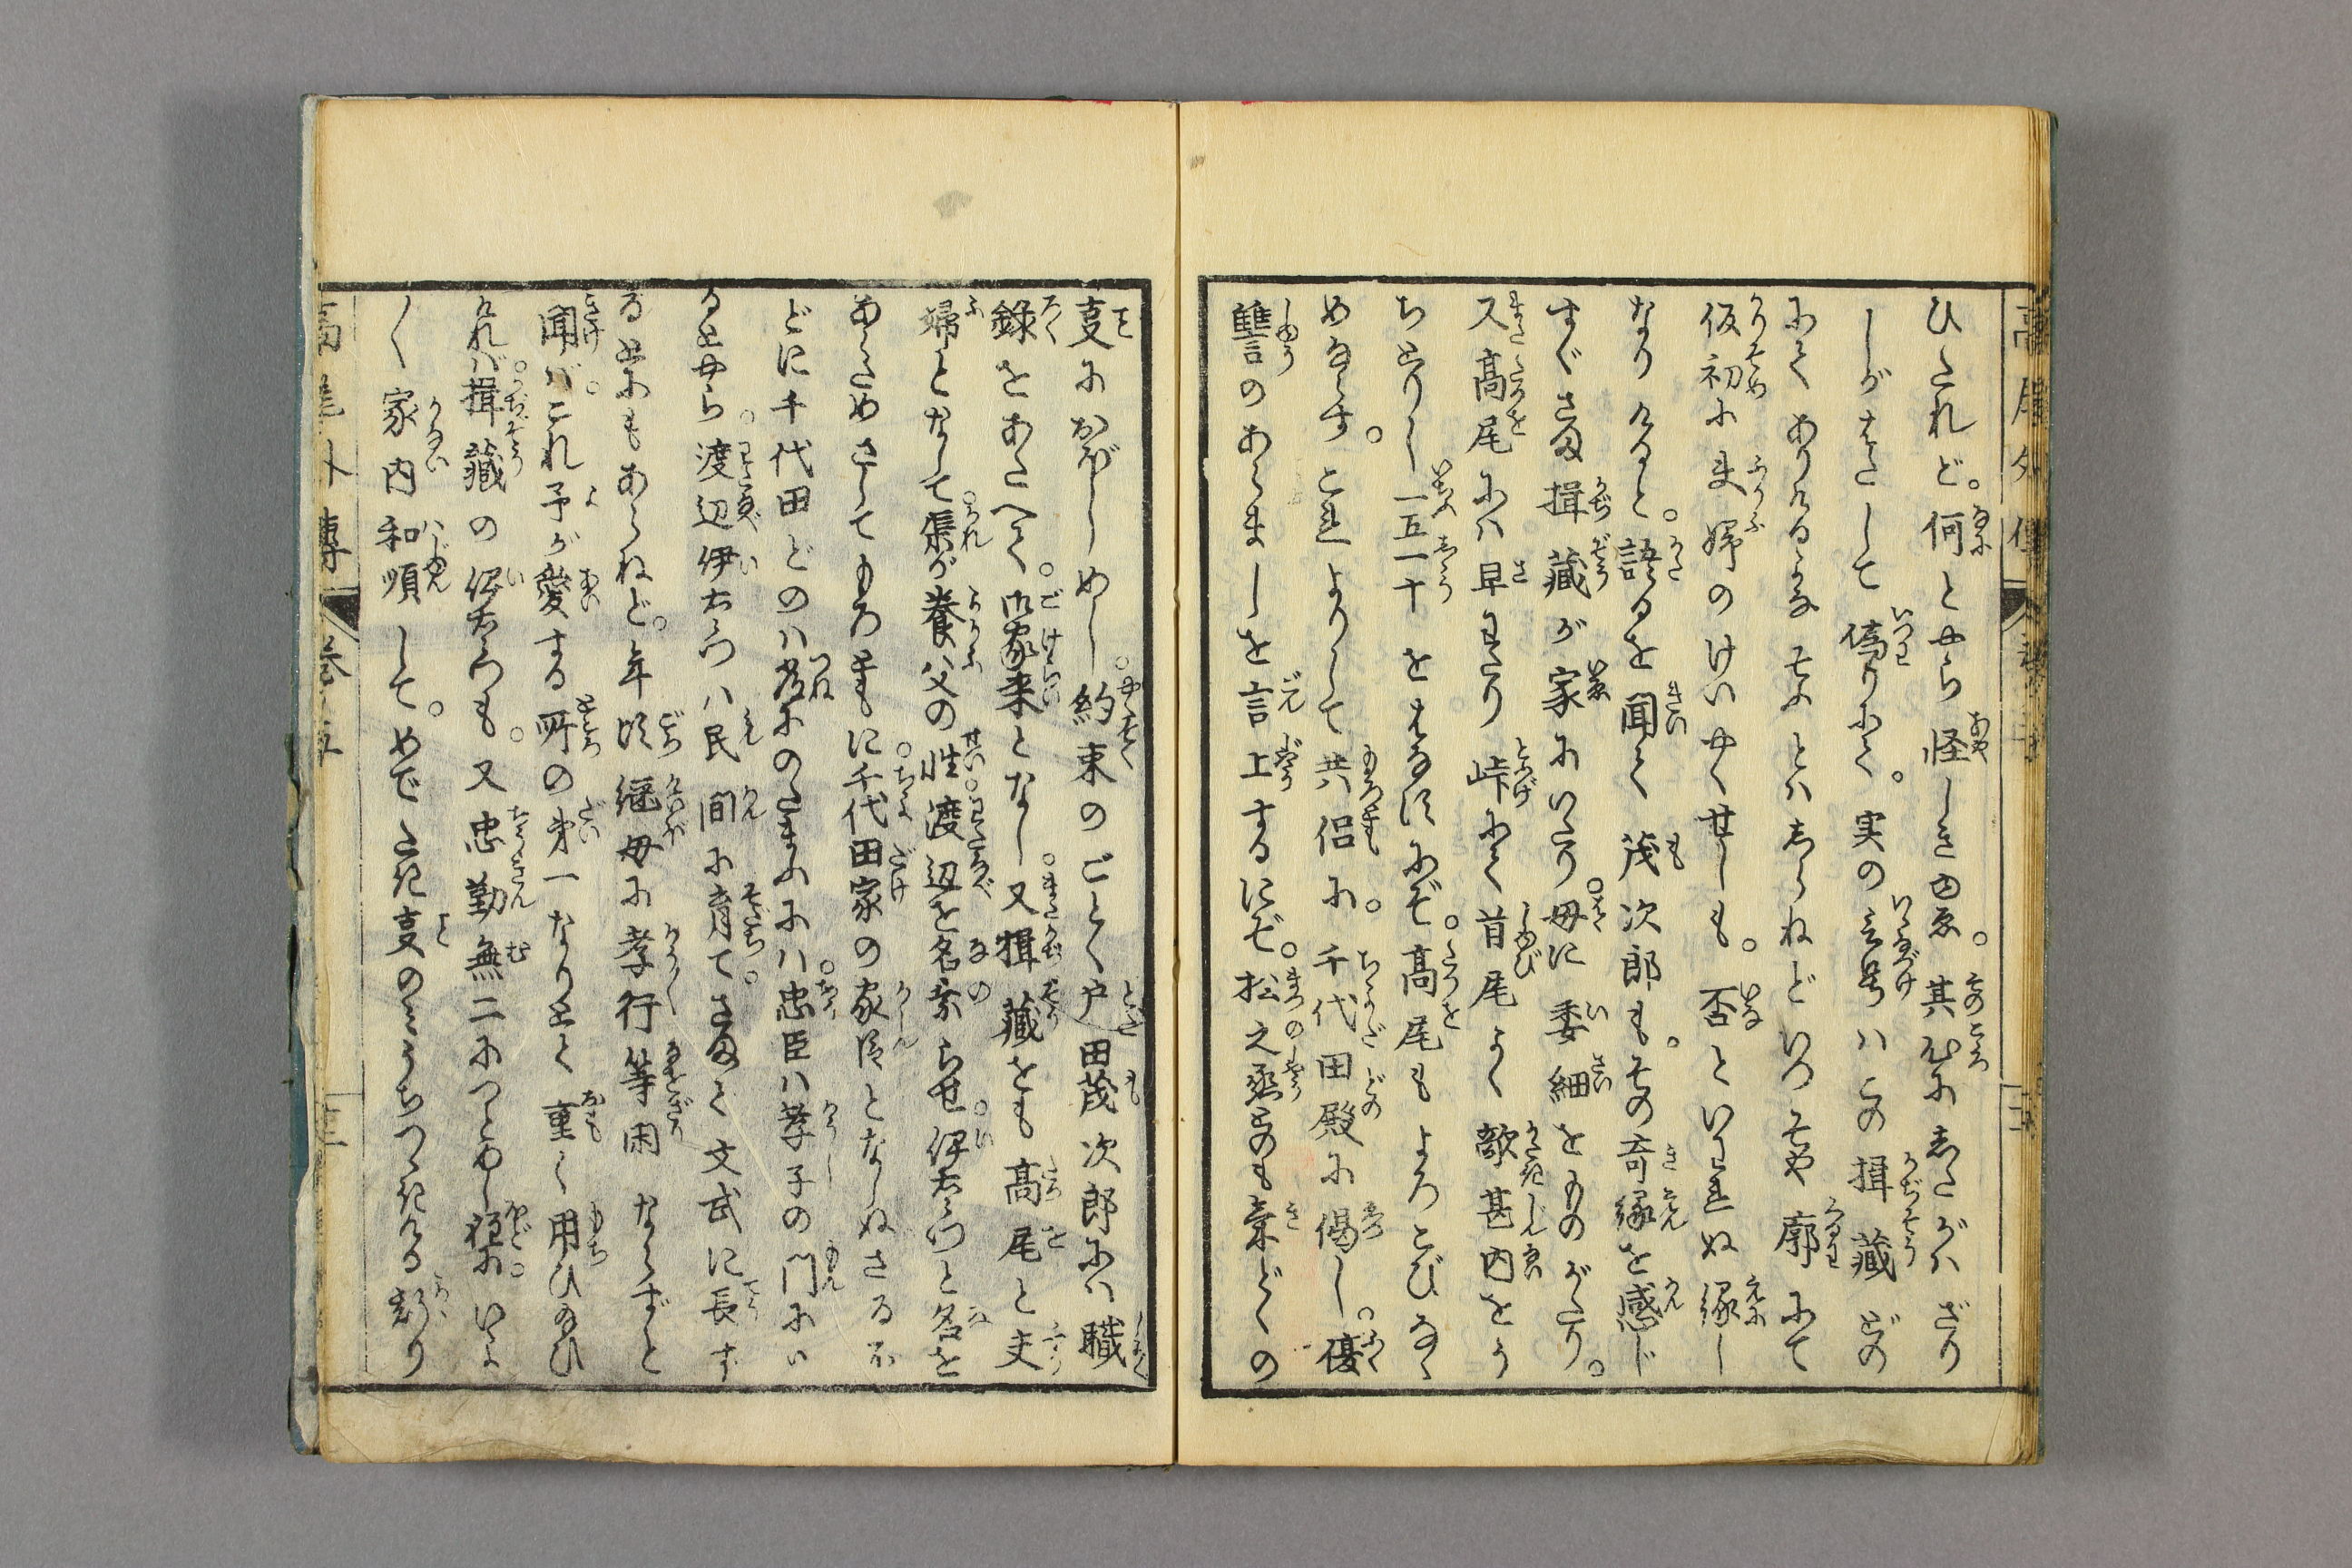 ひたれど。何とやら怪しきゆゑ。其比にしたがはざり
しがはたして偽りにて。実の云号はこの揖蔵どの
にてありけるよなそふとはしらねどいつぞや廓にて
仮初に夫婦のけいやくせしも。否といはれぬ縁し
なりけると。語るを聞て茂次郎も。その奇縁を感じ
すぐさま揖蔵が家にいたり。母に委細をものがたり。
又高尾には早わたり峠にて首尾よく敵甚内をう
ちとりし一五一十をはなすにぞ。高尾もよろこびなゝ
めならず。これよりして共侶に。千代田殿に偈し。復
讐のあらましを言上するにぞ。松之丞君のも棄どくの
事におぼしめし。約束のごとく戸田茂次郎には職
録をあたへて。御家来となし。又揖蔵をも高尾と夫
婦となして。渠が養父の性。渡辺を名乗らせ。伊右衛門と名を
あらためさしてもろともに。千代田家の家臣となしぬさるほ
どに千代田どのは常にのたまふには。忠臣は孝子の門にい
るとやら。渡辺伊右衛門は民間に育て。さまて文武に長ず
るとにもあらねど。年頃継母に孝行等閑ならずと
聞ば。これ予が愛する所の第一なりとて重く用ひ給ひ
ければ。揖蔵の伊右衛門も。又忠勤無二につとめし程に。いよ
〱家内和順して。めでたき事のみうちつゞきける
高尾外傳 巻之五